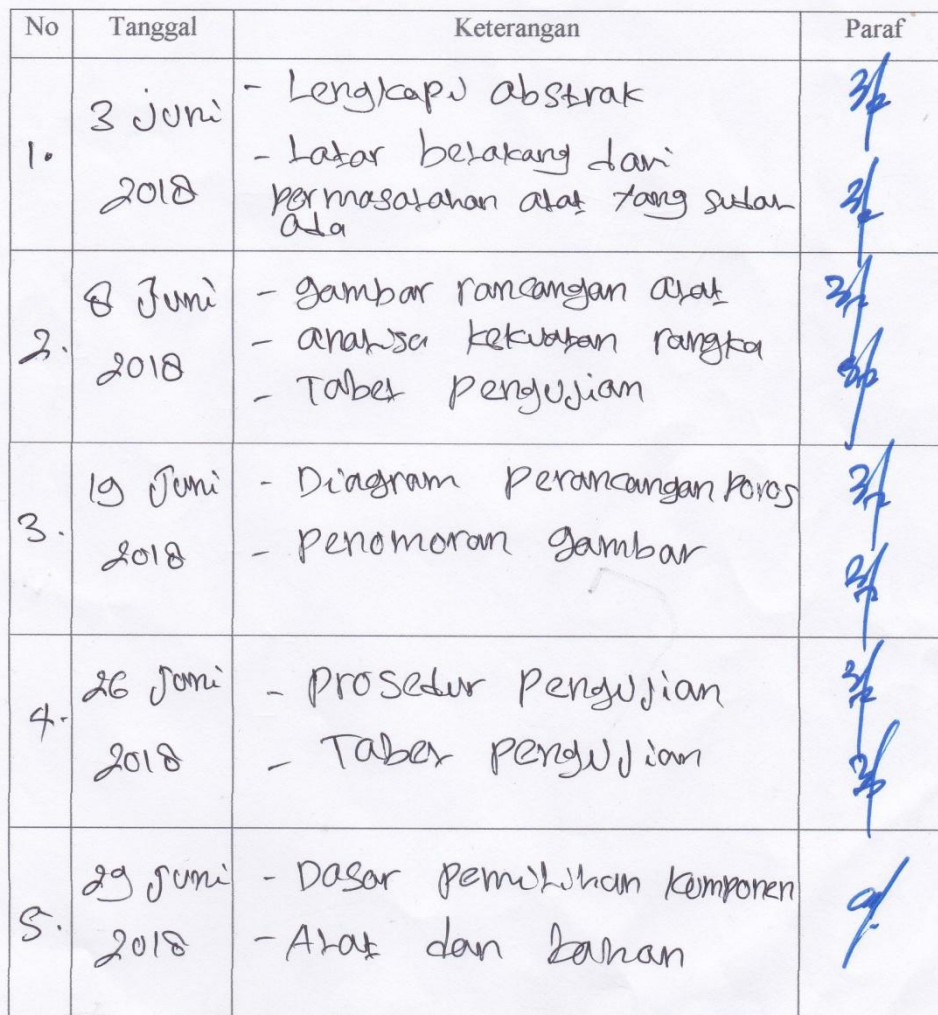 No Tanggal Keterangan Paraf
1. 3 Juni 2018
- Lengkapi abstrak
- Latar belakang dari
permasalahan alat yang sudah
ada
2. 8 Juni 2018
- gambar rancangan alat
- analisa kekuatan rangka
- Tabel pengujian
3. 19 Juni 2018
- Diagram Perancangan Poros
- penomoran gambar
4. 26 Juni 2018
- Prosedur Pengujian
- Tabel pengujian
5. 29 Juni 2018
- Dasar pemilihan komponen
- Alat dan bahan